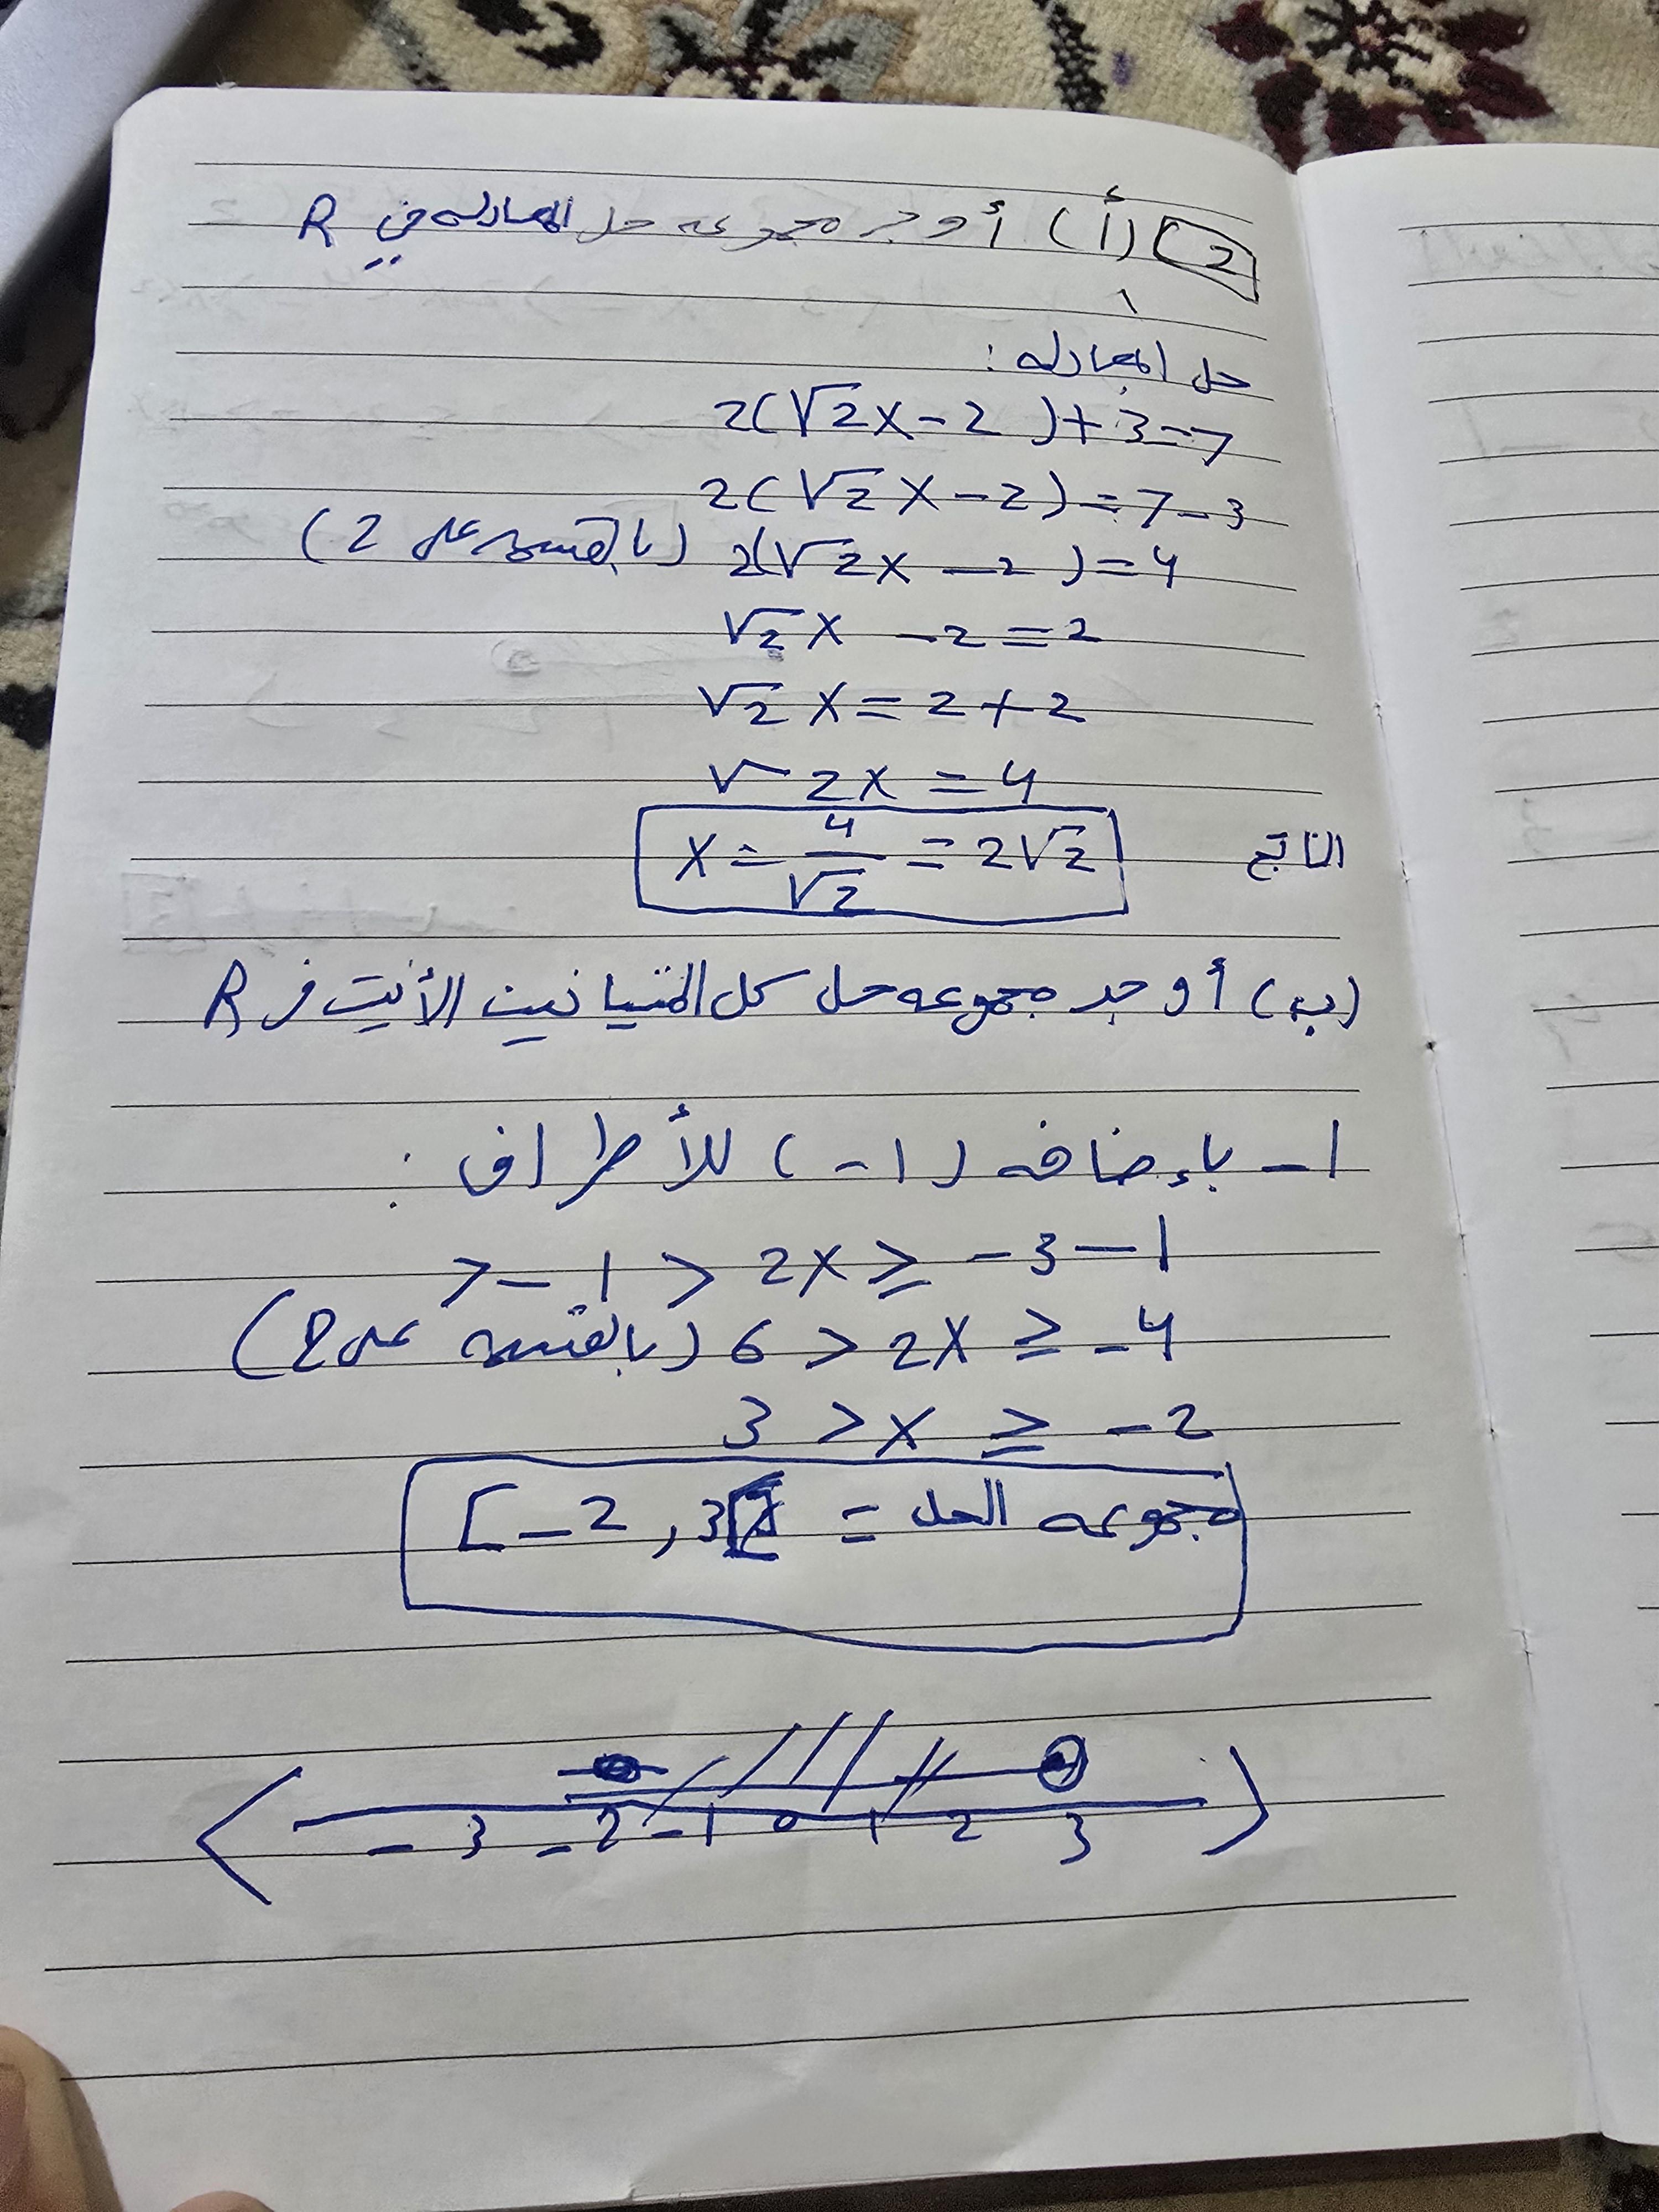 2 (أ) أوجد مجموعه حل المعادله في R
حل المعادله :
2(√2x - 2) + 3 = 7
2(√2 x - 2) = 7 - 3
2(√2x - 2) = 4 (بالقسمه على 2)
√2 x - 2 = 2
√2 x = 2 + 2
√2x = 4
الناتج x = 4/√2 = 2√2
(ب) أوجد مجموعه حل كل المتباينين الأتيت في R
1- بإضافه (-1) للأطراف :
7 - 1 > 2x ≥ -3 - 1
6 > 2x ≥ -4 (بالقسمه على 2)
3 > x ≥ -2
مجموعه الحل = [-2 , 3[
-3 -2 -1 0 1 2 3